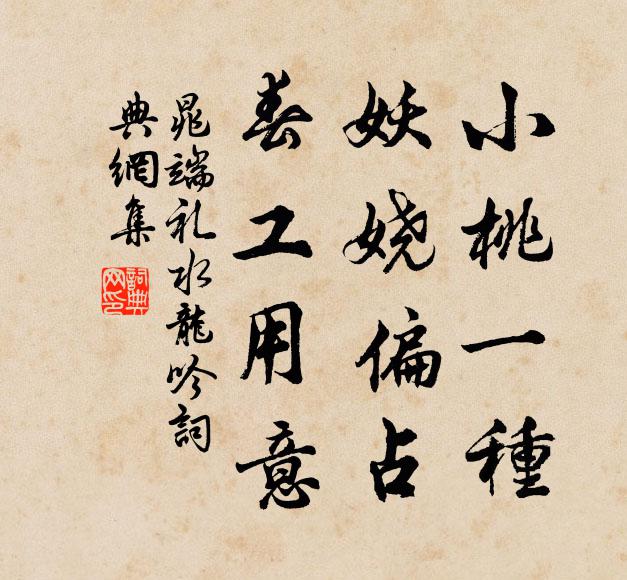 小桃一種
妖娆偏占
春工用意
晁端礼水龍吟詞
典網集
詞典网印